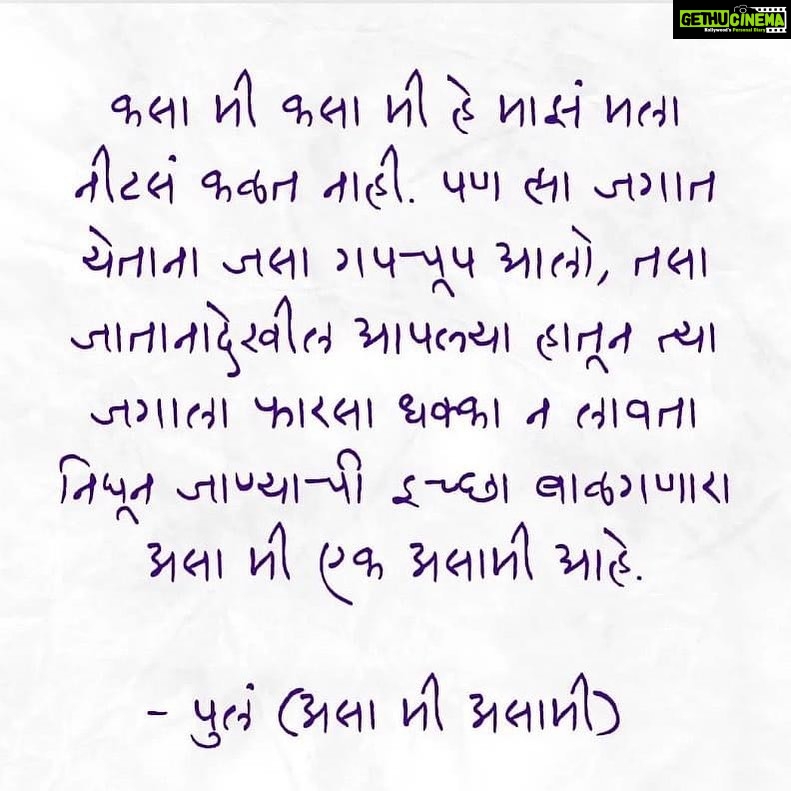 GETHU CINEMA
Kollywood's Personal Diary
कसा मी कसा मी हे माझं मला
नीटसं कळत नाही. पण ह्या जगात
येताना जसा गपचूप आलो, तसा
जातानादेखील आपल्या हातून त्या
जगाला फारसा धक्का न लावता
निघून जाण्याची इच्छा बाळगणारा
असा मी एक असामी आहे.
- पुलं (असा मी असामी)